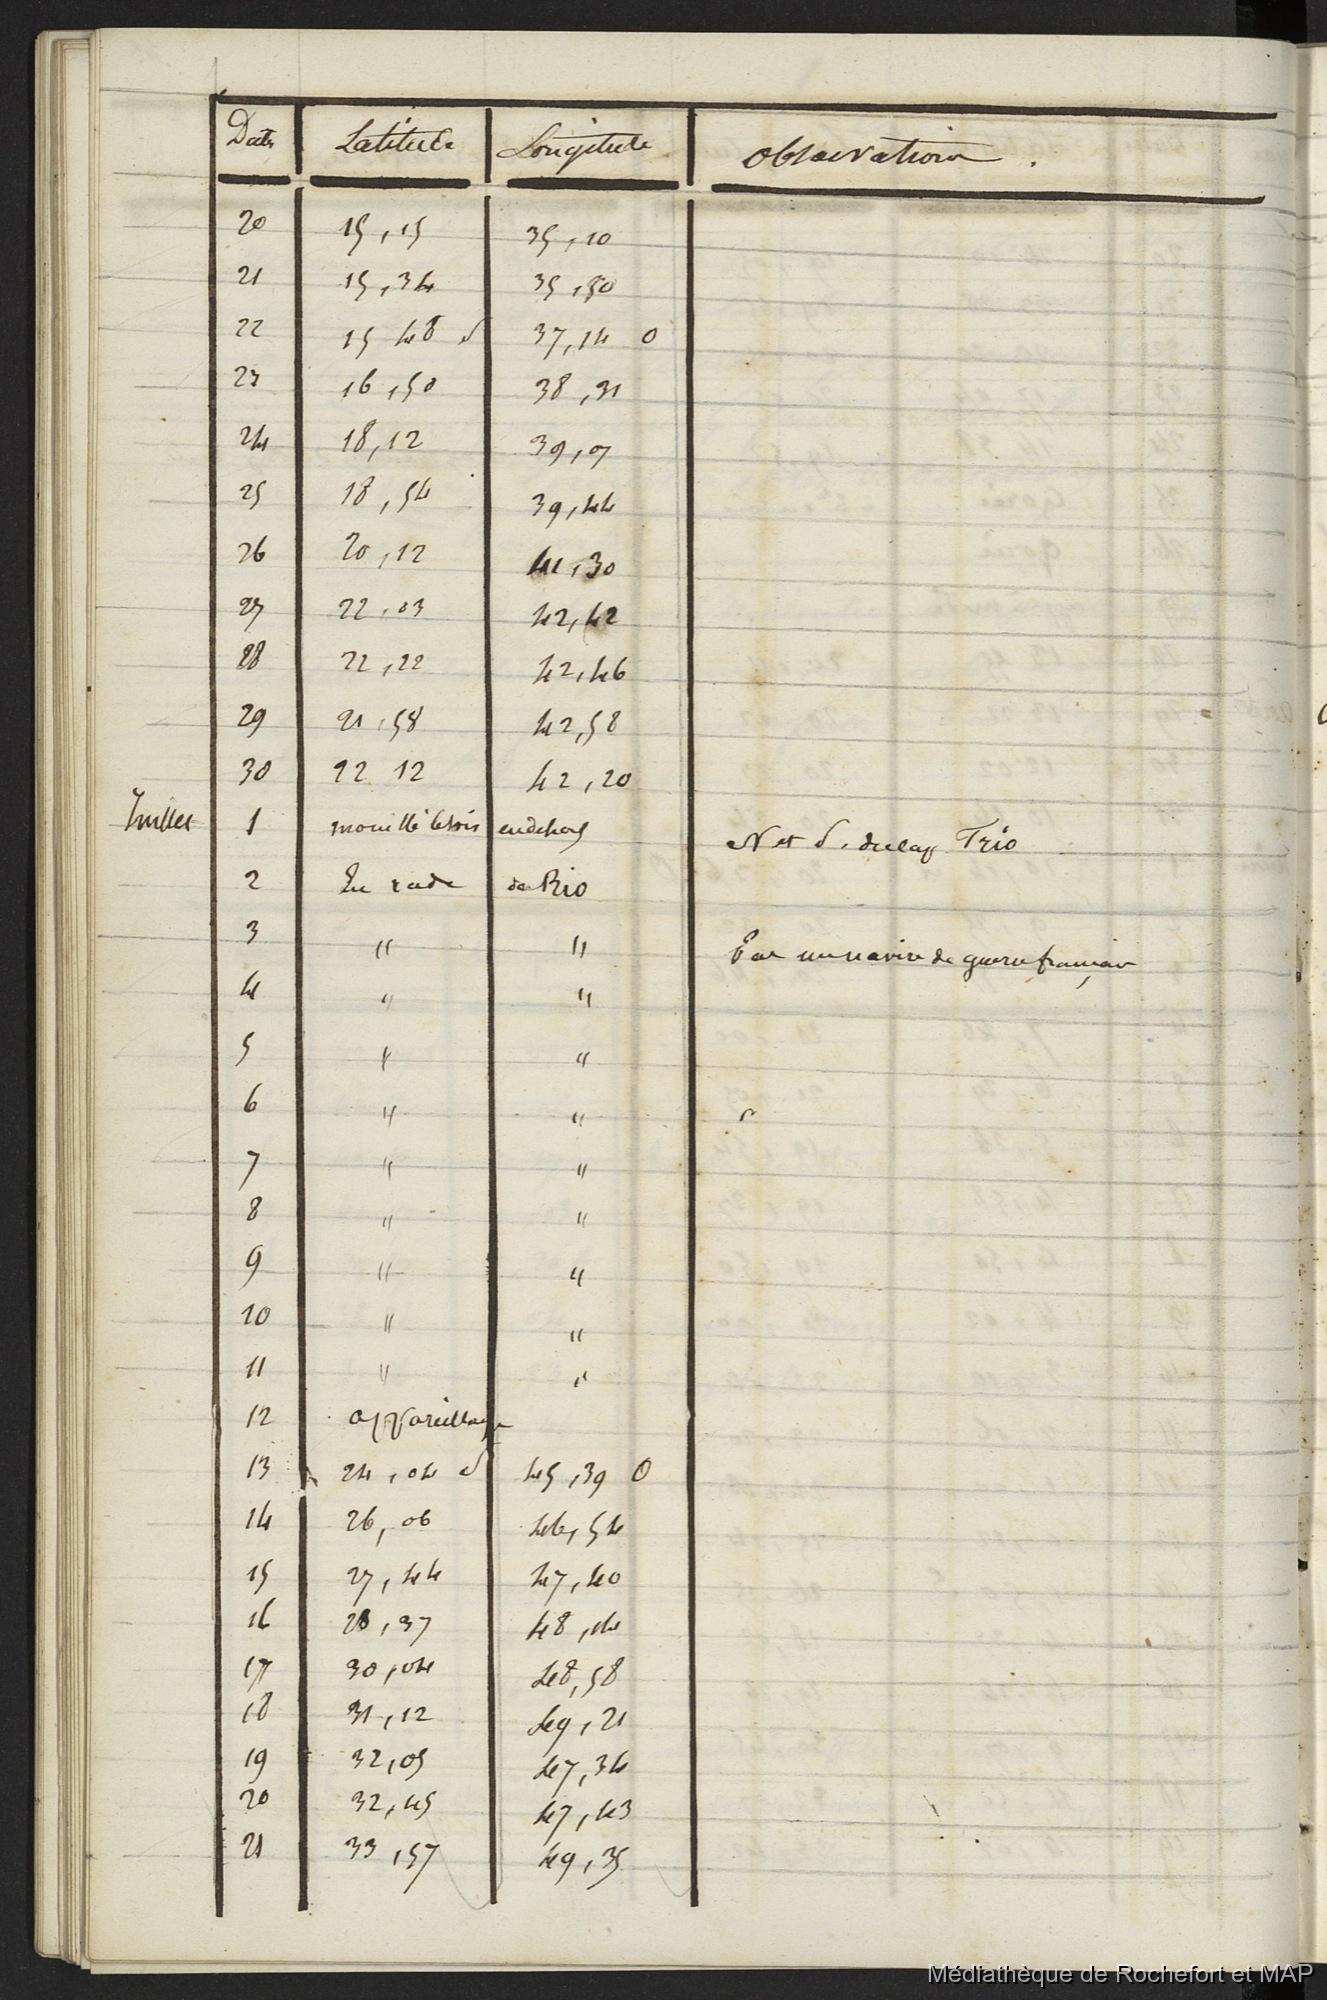 Dates Latitude Longitude Observations.
20 15,15 35,10
21 15,34 35,50
22 15 48 S 37,14 O
23 16,50 38,31
24 18,12 39,07
25 18,54 39,44
26 20,12 41,30
27 22,03 42,42
28 22,22 42,46
29 21,58 42,58
30 22 12 42,20
Juillet 1 mouillé le soir en dehors N et S. du cap Frio
2 En rade de Rio
3 " " Pas un navire de guerre français
4 " "
5 " "
6 " "
7 " "
8 " "
9 " "
10 " "
11 " "
12 appareillage
13 24,04 S 45,39 O
14 26,06 46,54
15 27,44 47,40
16 28,37 48,14
17 30,04 48,58
18 31,12 49,21
19 32,05 47,34
20 32,45 47,43
21 33,57 49,35
Médiathèque de Rochefort et MAP